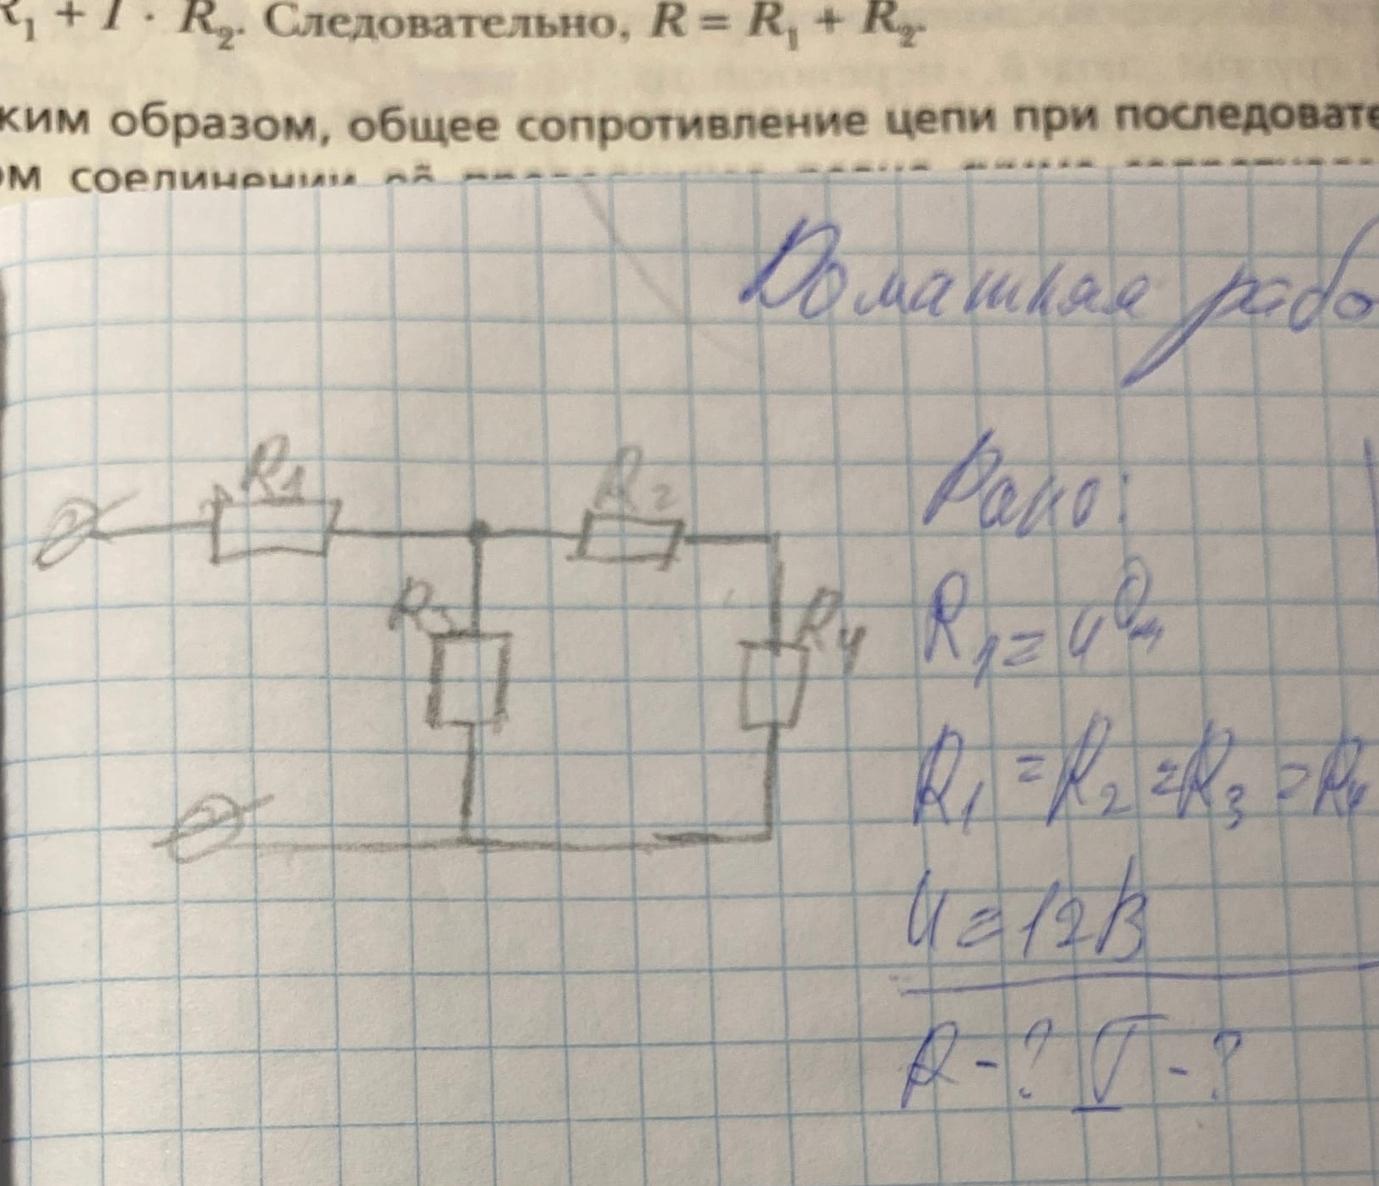 R₁ + I · R₂. Следовательно, R = R₁ + R₂.
ким образом, общее сопротивление цепи при последовате
ом соединении её
Домашняя рабо
R₁
R₂
R₃
R₄
Дано:
R₁ = 4 Ом
R₁ = R₂ = R₃ = R₄
U = 12 В
R - ? I - ?